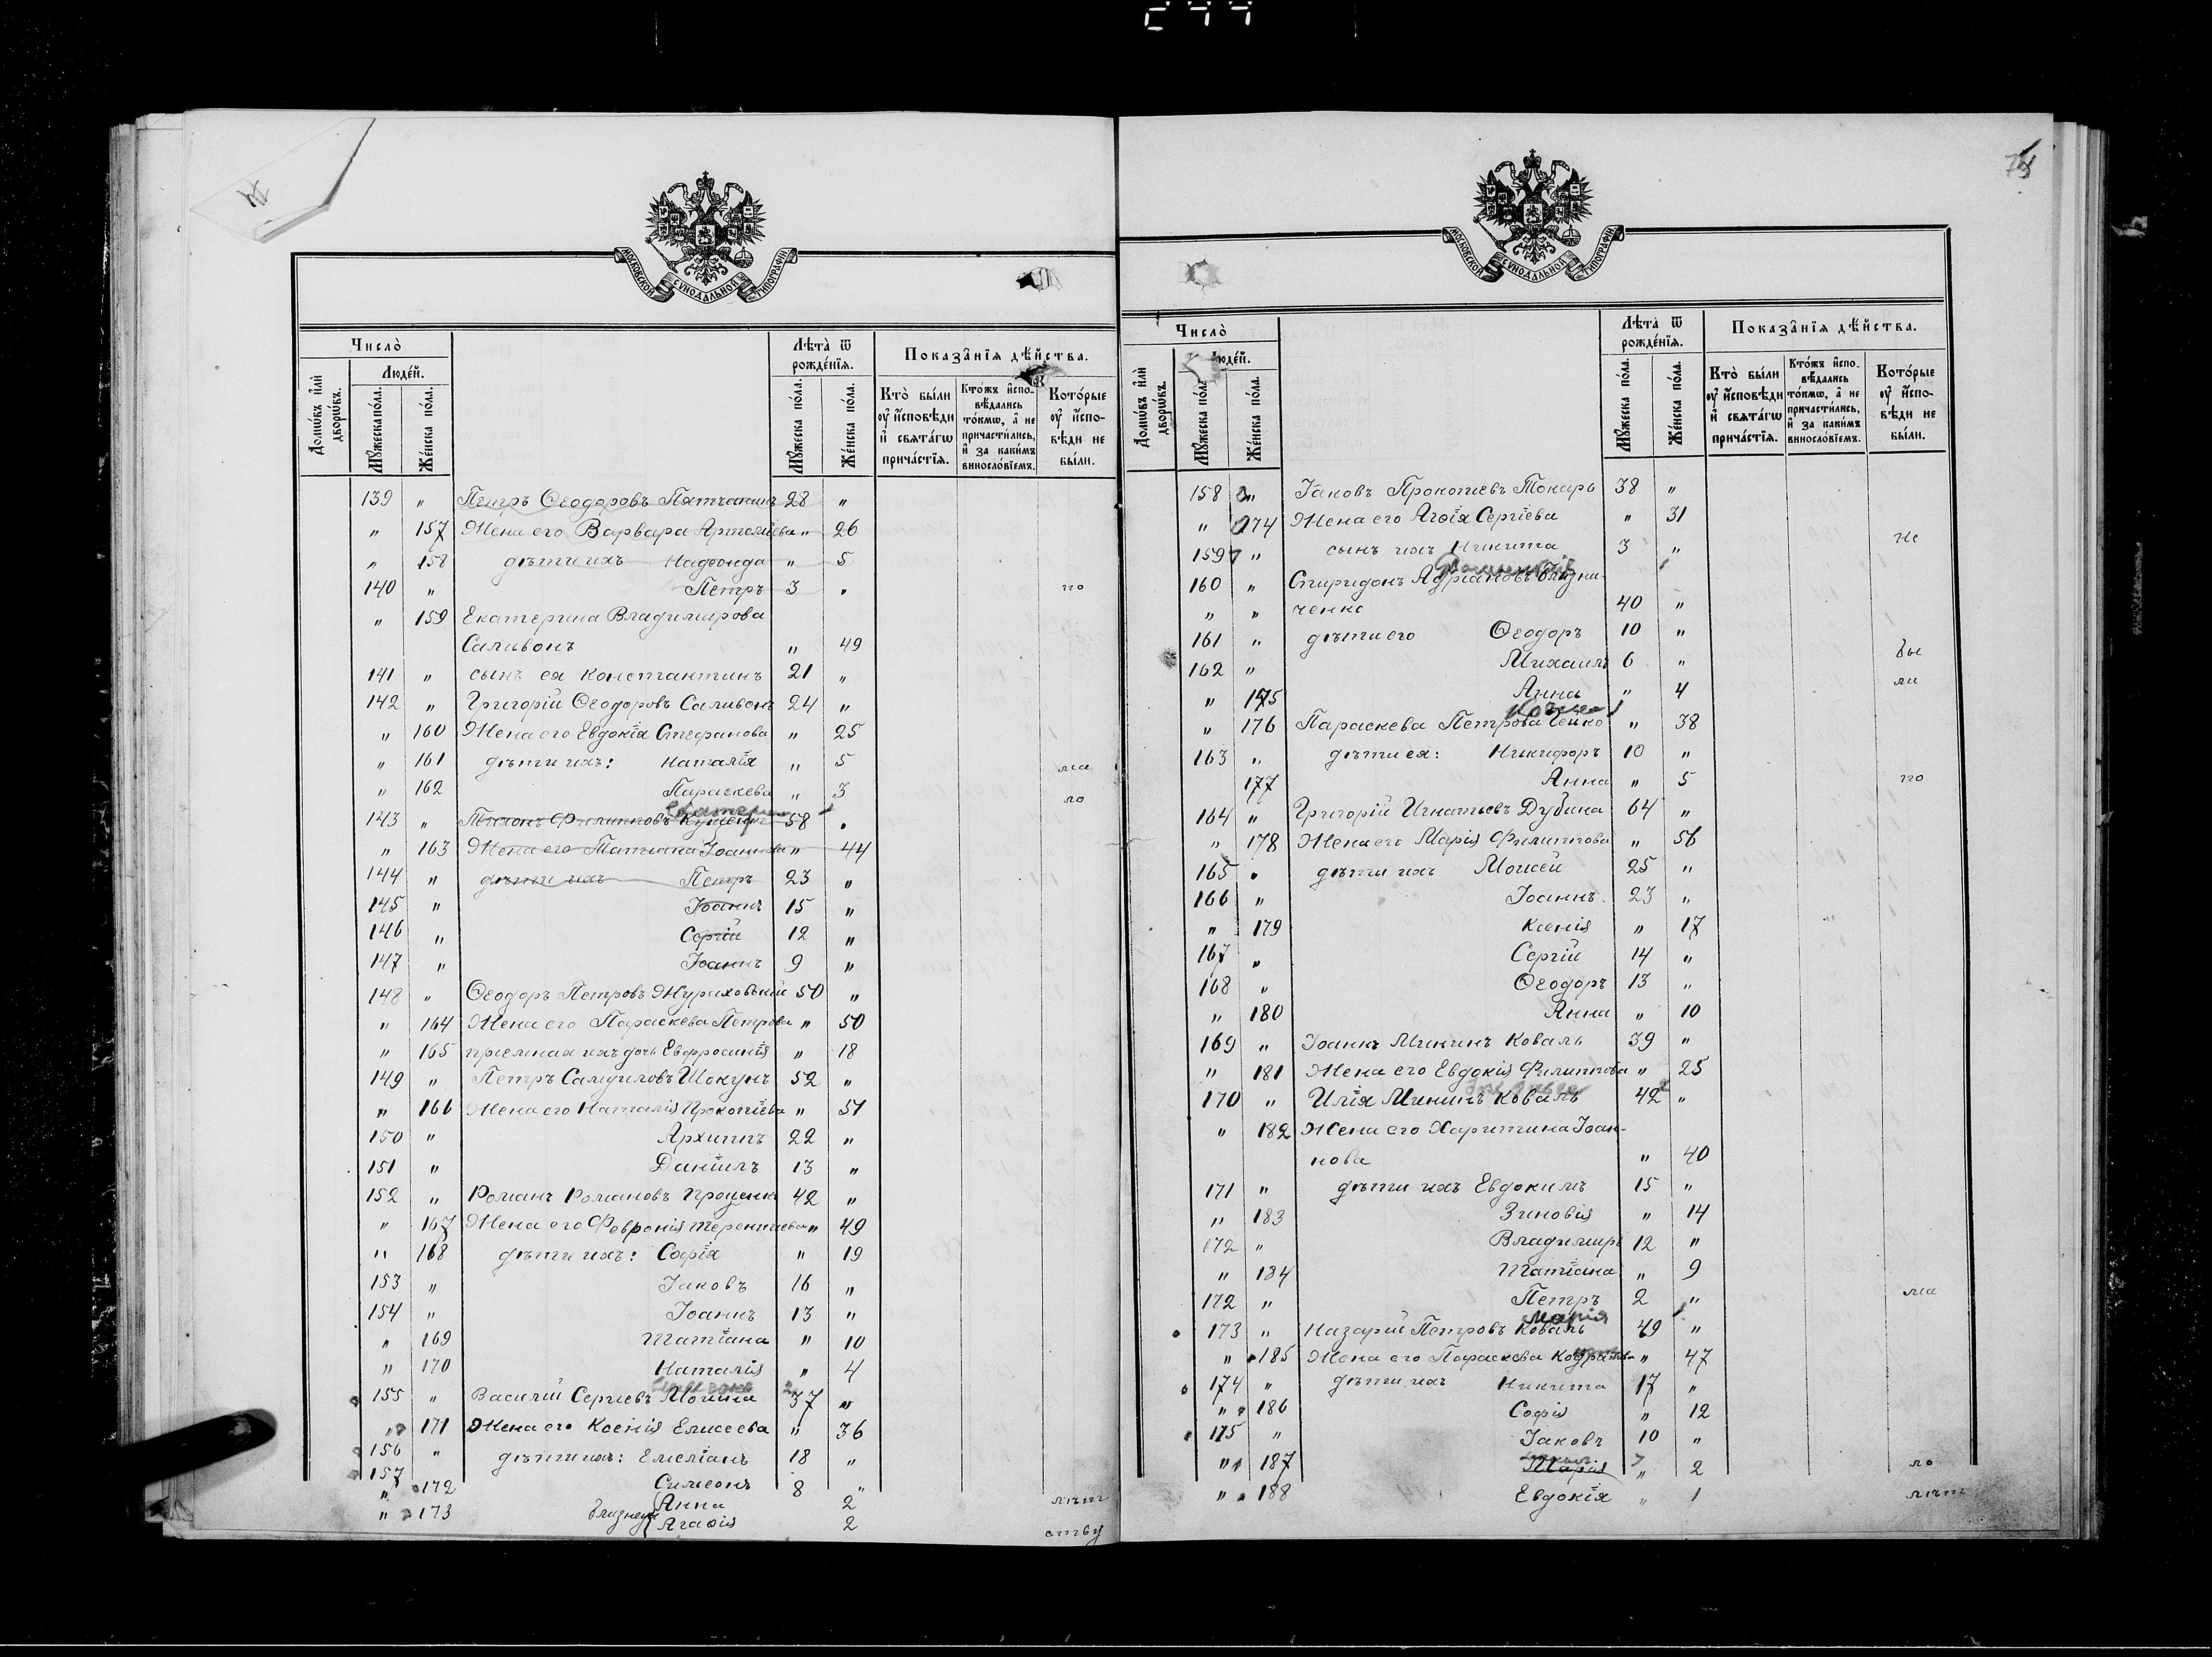 МОСКОВСКОЙ СУНОДАЛЬНОЙ ТИПОГРАФІИ
Число̀
Лѣта̀ ѿ рожде́нїѧ.
Показа̑нїѧ дѣ́йства.
Домѡ́въ и҆лѝ дворѡ́въ.
Люде́й.
Мꙋ́жеска по́ла.
Же́нска по́ла.
Мꙋ́жеска по́ла.
Же́нска по́ла.
Кто̀ бы́ли ᲂу҆ и҆́сповѣди и҆ свѧта́гѡ прича́стїѧ.
Кто́жъ и҆спо- вѣ́дались то́кмѡ, а҆ не причасти́лись, и҆ за каки́мъ виносло́вїемъ.
Кото́рые ᲂу҆ и҆́спо- вѣди не бы́ли.
139 " Петръ Ѳеодоровъ Пятчанинъ 28 "
" 157 Жена его Варвара Артеміева " 26
" 158 дѣти ихъ Надежда " 5
140 " Петръ 3 " по
" 159 Екатерина Владимирова
Саливонъ " 49
141 " сынъ ея Константинъ 21 "
142 " Григорій Ѳеодоровъ Саливонъ 24 "
" 160 Жена его Евдокія Стефанова " 25
" 161 дѣти ихъ: Наталія " 5 ма
" 162 Параскева " 3 ло
143 " Тихонъ Филипповъ 58 "
" 163 Жена его Татіана Іоаннова " 44
144 " дѣти ихъ Петръ 23 "
145 " Іоаннъ 15 "
146 " Сергій 12 "
147 " Іоаннъ 9 "
148 " Ѳеодоръ Петровъ Жураховьскій 50 "
" 164 Жена его Параскева Петрова " 50
" 165 пріемная ихъ дочь Евфросинія " 18
149 " Петръ Самуиловъ Шокунъ 52 "
" 166 Жена его Наталія Прокопіева " 51
150 " Архиппъ 22 "
151 " Даніилъ 13 "
152 " Романъ Романовъ Проценко 42 "
" 167 Жена его Февронія Терентиева " 49
" 168 дѣти ихъ: Софія " 19
153 " Іаковъ 16 "
154 " Іоаннъ 13 "
" 169 Татіана " 10
" 170 Наталія " 4
155 " Василій Сергіевъ 37 "
" 171 Жена его Ксенія Елисеева " 36
156 " дѣти ихъ: Емеліанъ 18 "
157 Симеонъ 8 "
" 172 близнецы Анна 2 лѣт
" 173 Агаѳія 2 ству
МОСКОВСКОЙ СУНОДАЛЬНОЙ ТИПОГРАФІИ
Число̀
Лѣта̀ ѿ рожде́нїѧ.
Показа̑нїѧ дѣ́йства.
Домѡ́въ и҆лѝ дворѡ́въ.
Люде́й.
Мꙋ́жеска по́ла.
Же́нска по́ла.
Мꙋ́жеска по́ла.
Же́нска по́ла.
Кто̀ бы́ли ᲂу҆ и҆́сповѣди и҆ свѧта́гѡ прича́стїѧ.
Кто́жъ и҆спо- вѣ́дались то́кмѡ, а҆ не причасти́лись, и҆ за каки́мъ виносло́вїемъ.
Кото́рые ᲂу҆ и҆́спо- вѣди не бы́ли.
158 " Іаковъ Прокопіевъ Токарь 38 "
" 174 Жена его Агаѳія Сергіева " 31
159 " сынъ ихъ Никита 3 " не
160 " Спиридонъ Адріановъ Близни-
" " ченко 40 "
161 " дѣти его Ѳеодоръ 10 "
162 " Михаилъ 6 " бы
" 175 Анна " 4 ли
" 176 Параскева Петрова " 38
163 " дѣти ея: Никифоръ 10 "
177 Анна " 5 по
164 " Григорій Игнатьевъ Дубина 64 "
" 178 Жена его Марія Филиппова " 56
165 " дѣти ихъ Моисей 25 "
166 " Іоаннъ 23 "
" 179 Ксенія " 17
167 " Сергій 14 "
168 " Ѳеодоръ 13 "
" 180 Анна " 10
169 " Іоаннъ Мининъ Коваль 39 "
" 181 Жена его Евдокія Филиппова " 25
170 " Илія Мининъ Коваль 42 "
" 182 Жена его Харитина Іоан-
нова " 40
171 " дѣти ихъ Евдокимъ 15 "
" 183 Зиновія " 14
172 " Владимиръ 12 "
" 184 Татіана " 9
172 " Петръ 2 " ма
Марія
173 " Назарій Петровъ Коваль 49 "
" 185 Жена его Параскева " 47
174 " дѣти ихъ Никита 17 "
" 186 Софія " 12
175 " Іаковъ 10 "
" 187 Марія " 2 ло
" 188 Евдокія " 1 лѣт